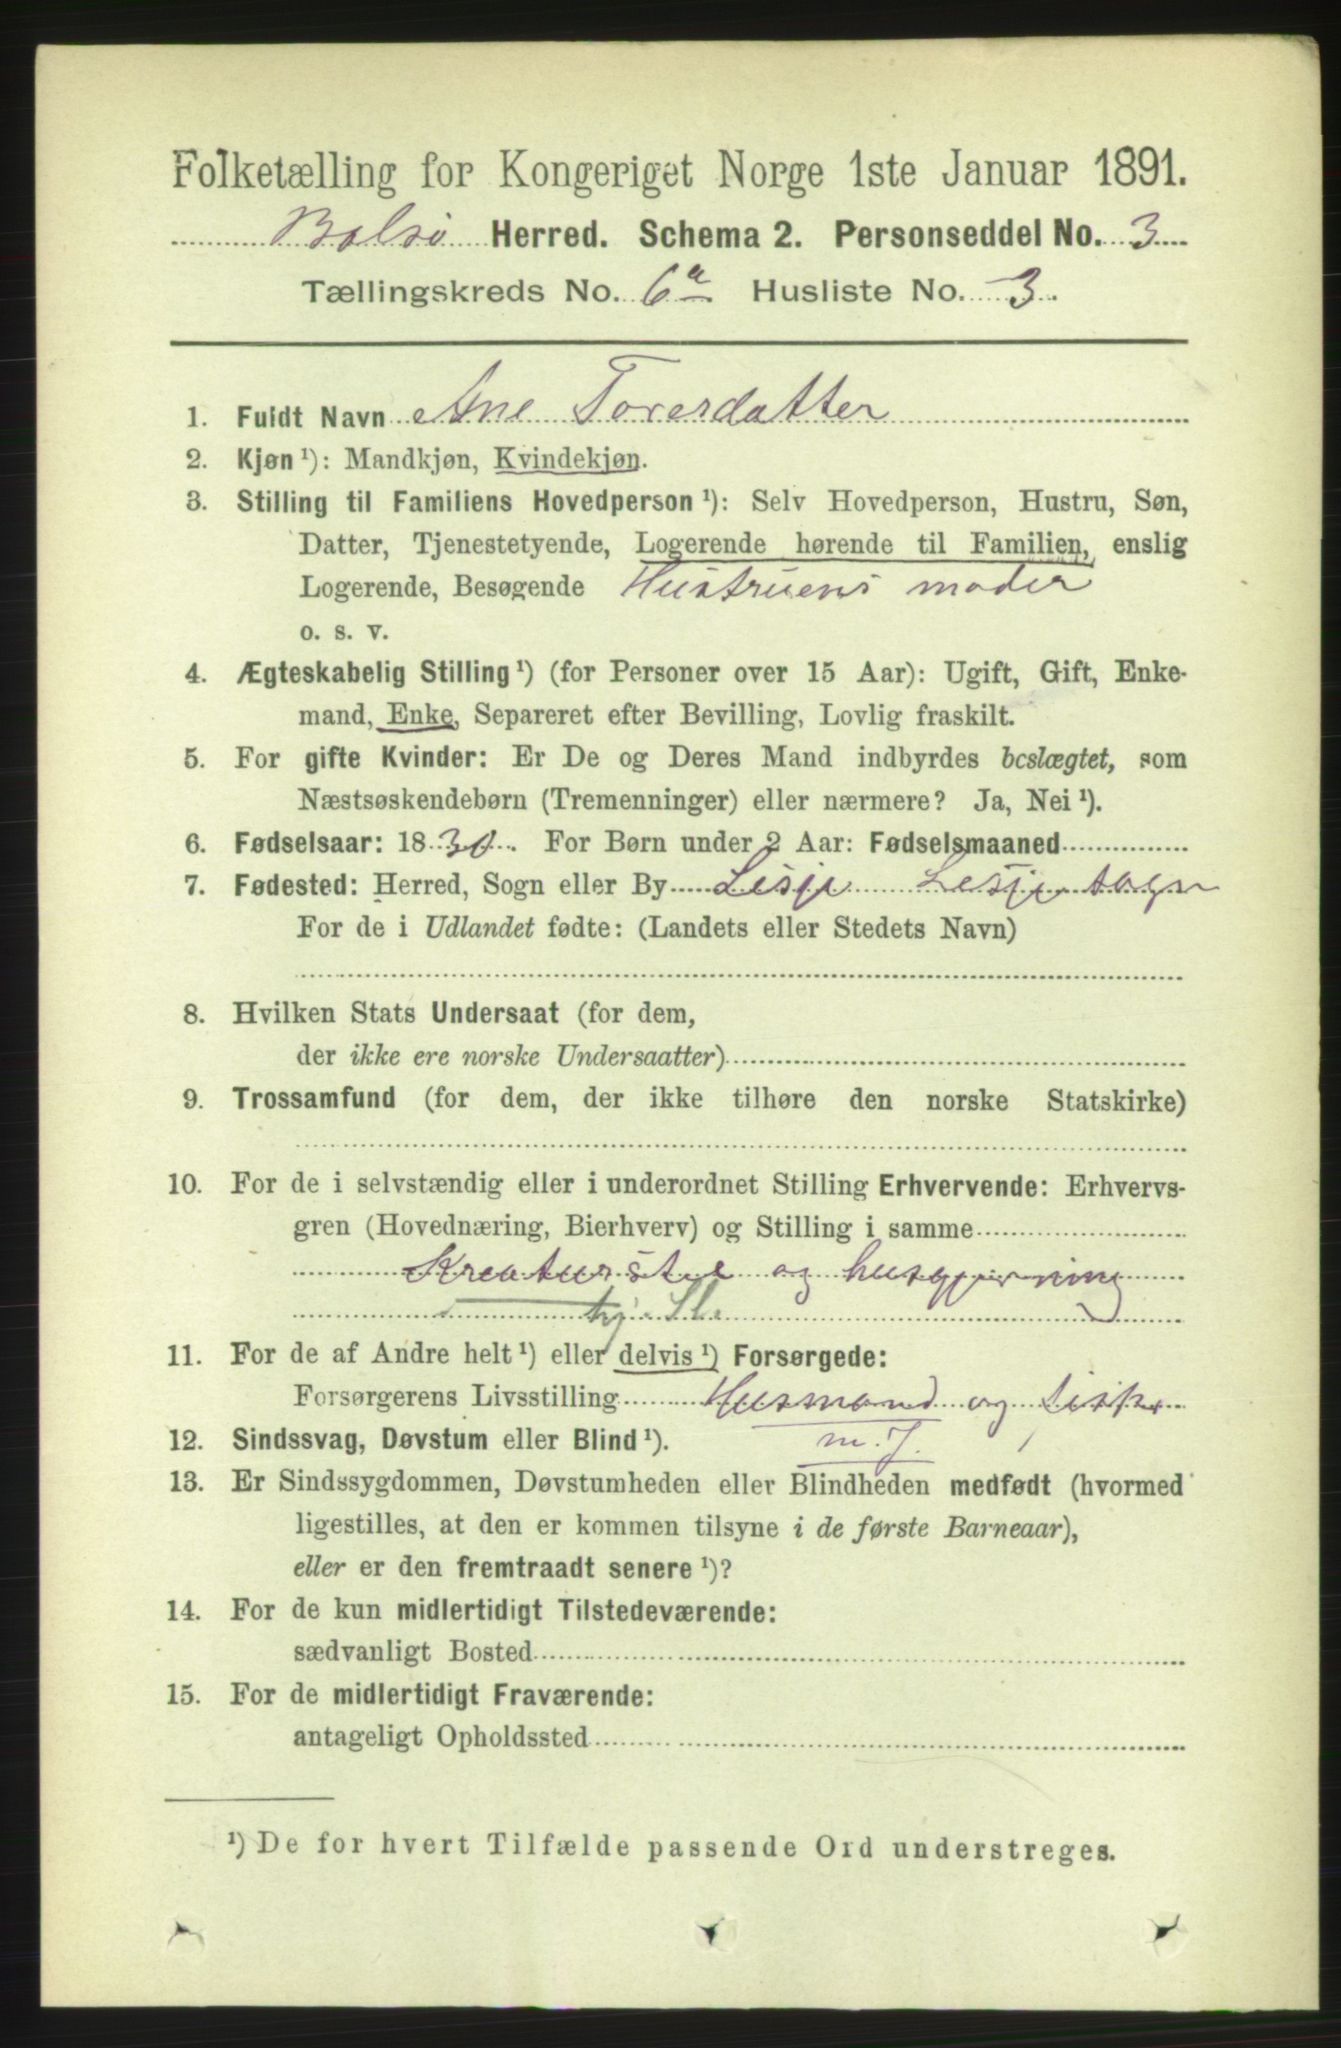 Folketælling for Kongeriget Norge 1ste Januar 1891.
Bolsø Herred. Schema 2. Personseddel No. 3
Tællingskreds No. 6a Husliste No. 3.
1. Fuldt Navn Ane Toresdatter
2. Kjøn ¹): Mandkjøn, Kvindekjøn.
3. Stilling til Familiens Hovedperson ¹): Selv Hovedperson, Hustru, Søn,
Datter, Tjenestetyende, Logerende hørende til Familien, enslig
Logerende, Besøgende Hustruens moder
o. s. v.
4. Ægteskabelig Stilling ¹) (for Personer over 15 Aar): Ugift, Gift, Enke-
mand, Enke, Separeret efter Bevilling, Lovlig fraskilt.
5. For gifte Kvinder: Er De og Deres Mand indbyrdes beslægtet, som
Næstsøskendebørn (Tremenninger) eller nærmere? Ja, Nei ¹).
6. Fødselsaar: 1830. For Børn under 2 Aar: Fødselsmaaned
7. Fødested: Herred, Sogn eller By Lesje Lesje sogn
For de i Udlandet fødte: (Landets eller Stedets Navn)
8. Hvilken Stats Undersaat (for dem,
der ikke ere norske Undersaatter)
9. Trossamfund (for dem, der ikke tilhøre den norske Statskirke)
10. For de i selvstændig eller i underordnet Stilling Erhvervende: Erhvervs-
gren (Hovednæring, Bierhverv) og Stilling i samme
Kreaturstel og husgjerning
11. For de af Andre helt ¹) eller delvis ¹) Forsørgede:
Forsørgerens Livsstilling Husmand og Fisker
12. Sindssvag, Døvstum eller Blind ¹). m. J.
13. Er Sindssygdommen, Døvstumheden eller Blindheden medfødt (hvormed
ligestilles, at den er kommen tilsyne i de første Barneaar),
eller er den fremtraadt senere ¹)?
14. For de kun midlertidigt Tilstedeværende:
sædvanligt Bosted
15. For de midlertidigt Fraværende:
antageligt Opholdssted
¹) De for hvert Tilfælde passende Ord understreges.